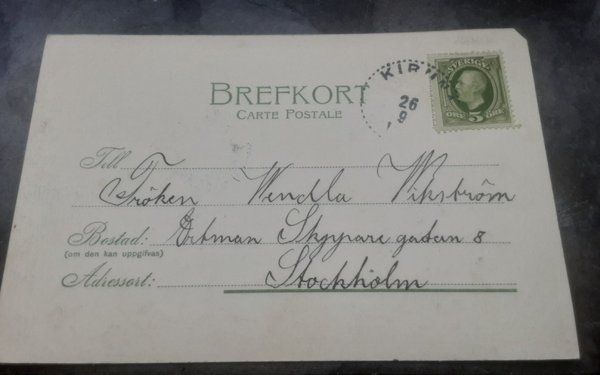 BREFKORT
CARTE POSTALE
SVERIGE
5
ÖRE ÖRE
KIRUNA
26
9
Till Fröken Wendla Wikström
Bostad: Ertman Skeppare gatan 8
(om den kan uppgifvas)
Adressort: Stockholm